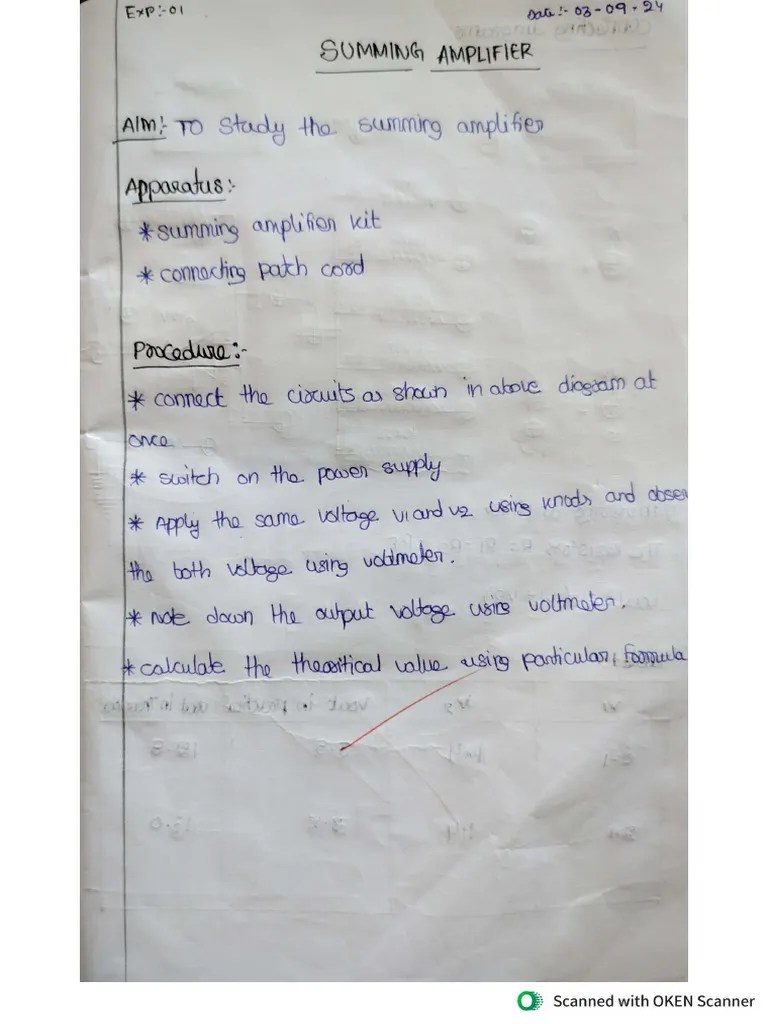 Exp:-01
Date:- 03-09-24
SUMMING AMPLIFIER
AIM:- TO Study the summing amplifier
Apparatus:-
* summing amplifier kit
* connecting patch cord
Procedure:-
* connect the circuits as shown in above diagram at
once
* switch on the power supply
* Apply the same voltage v1 and v2 using knods and obser
the both voltage using voltmeter.
* note down the output voltage using voltmeter.
* calculate the theoritical value using particular formula
Scanned with OKEN Scanner